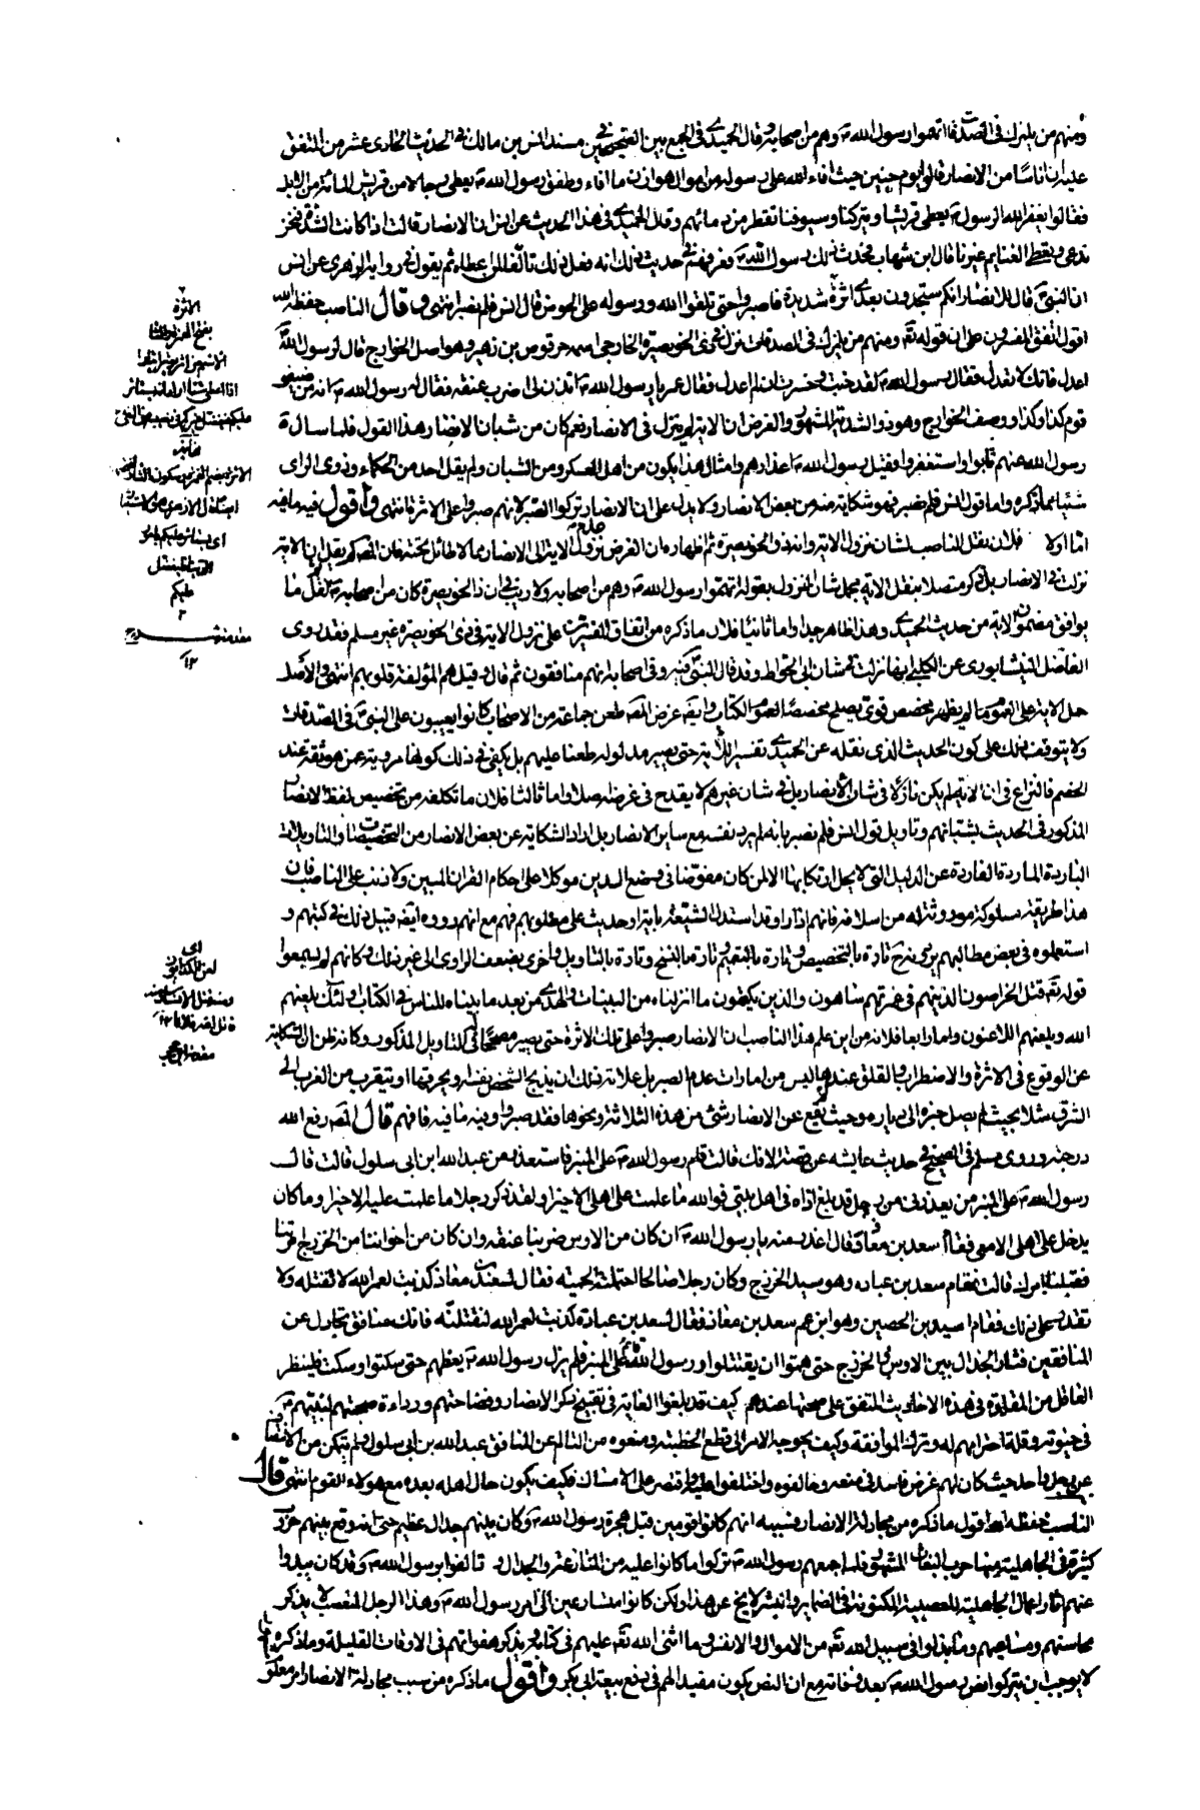 ومنهم من يلمزك في الصدقات فاتهموا رسول الله ص وهم من اصحابه وقال الحميدي في الجمع بين الصحيحين في مسند انس بن مالك في الحديث الحادي عشر من المتفق
عليه ان اناسا من الانصار قالوا يوم حنين حيث افاء الله على رسوله من اموال هوازن ما افاء وطفق رسول الله ص يعطي رجالا من قريش المائة من الابل
فقالوا يغفر الله لرسول الله ص يعطي قريشا ويتركنا وسيوفنا تقطر من دمائهم وقال الحميدي في هذا الحديث عن انس ان الانصار قالت اذا كانت الشدة فنحن
ندعى ويعطى الغنايم غيرنا قال ابن شهاب فحدث ذلك رسول الله ص فعرفهم في حديث ذلك انه فعل ذلك تألفا لمن اعطاه ثم يقول في رواية الزهري عن انس
ان النبي ص قال للانصار انكم ستجدون بعدي اثرة شديدة فاصبروا حتى تلقوا الله ورسوله على الحوض قال انس فلم نصبر انتهى وقال الناصب خفظه الله
اقول اتفق المفسرون على ان قوله تعه ومنهم من يلمزك في الصدقات نزل في ذي الخويصرة الخارجي اسمه حرقوص بن زهير وهو اصل الخوارج قال لرسول الله ص
اعدل فانك لا تعدل فقال رسول الله ص لقد خبت وخسرت ان لم اعدل فقال عمر يا رسول الله ص ائذن لي اضرب عنقه فقال له رسول الله ص انه من ضئضئ
قوم كذا وكذا ووصف الخوارج وهو ذو الثدية المشهور والغرض ان الاية لم ينزل في الانصار نعم كان من شبان الانصار هذا القول فلما سال
رسول الله عنهم تابوا واستغفروا فقبل رسول الله ص اعذارهم وامثال هذا يكون من اهل العسكر ومن الشبان ولم يقل احد من الحكماء وذوي الراي
شيئا مما ذكره واما قول انس فلم نصبر فهو شكاية منه من بعض الانصار ولا يدل على ان الانصار تركوا الصبر لانهم صبروا على الاثرة انتهى واقول فيه ما فيه
اما اولا فلان نقل الناصب لشان نزول الاية وانه ذو الخويصرة ثم اظهاره ان الغرض نزول الاية الى الانصار مما لا طائل تحته فان المص لم يقل ان الاية
نزلت في الانصار بل ذكر متصلا بنقل الاية مجمل شان النزول بقوله اتهموا رسول الله ص وهم من اصحابه ولا ريب في ان ذا الخويصرة كان من اصحابه ثم نقل ما
يوافق مضمون الاية من حديث الحميدي وهذا ظاهر جدا واما ثانيا فلان ما ذكره من اتفاق المفسرين على نزول الاية في ذي الخويصرة غير مسلم فقد روى
الفاضل النيشابوري عن الكلبي انها نزلت في شان ابي الجواظ وقد قال النبي ص فيه وفي اصحابه انهم منافقون ثم قال وقيل هم المؤلفة قلوبهم انتهى والاصل
حمل الاية على العموم ما لم يظهر مخصص قوي يصلح مخصصا لعموم الكتاب وايضه غرض المص طعن جماعة من الاصحاب كانوا يعيبون على النبي ص في الصدقات
ولا يتوقف ذلك على كون الحديث الذي نقله عن الحميدي تفسيرا للاية حتى يصير مدلوله طعنا عليهم بل يكفي في ذلك كونها مروية عن موثقة عند
الخصم فالنزاع في ان الاية لم يكن نازلة في شان الانصار بل في شان غيرهم لا يقدح في غرضه اصلا واما ثالثا فلان ما تكلفه من تخصيص لفظ الانصار
المذكور في الحديث بشبانهم وتاويل قول انس فلم نصبر بانه لم يرد نفسه مع ساير الانصار بل اراد الشكاية عن بعض الانصار من التخصيصات والتاويلات
الباردة الماردة العاردة عن الدليل التي لا يحل ارتكابها الا لمن كان مفوضا في وضع الدين موكلا على احكام القران المبين ولا ذنب على الناصب فان
هذا طريقة مسلوكة موروثة له من اسلافه فانهم اذا راوا قد استدل الشيعة باية او حديث على مطلوبهم فهم مع انهم رووه ايضه قبيل ذلك في كتبهم و
استعملوه في بعض مطالبهم تارة بالتخصيص وتارة بالتعميم وتارة بالنسخ وتارة بالتاويل واخرى بضعف الراوي الى غير ذلك وكانهم لم يسمعوا
قوله تعه قتل الخراصون الذينهم في غمرتهم ساهون والذين يكتمون ما انزلناه من البينات والهدى من بعد ما بيناه للناس في الكتاب اولئك يلعنهم
الله ويلعنهم اللاعنون واما رابعا فلانه من اين علم هذا الناصب ان الانصار صبروا على تلك الاثرة حتى يصير مصححا للتاويل المذكور وكانه ظن ان الشكاية
عن الوقوع في الاثرة والاضطراب والقلق عندها ليس من امارات عدم الصبر بل علامة ذلك ان يذبح الشخص نفسه ويحرقها او يتقرب من الغرب الى
الشرق مثلا بحيث لم يصل خبره الى دياره وحيث لم يقع عن الانصار شئ من هذه الثلاثة ونحوها فقد صبروا وفيه ما فيه فافهم قال المص رفع الله
درجته وروى مسلم في الصحيح في حديث عايشة عن قصة الافك قالت قام رسول الله ص على المنبر فاستعذر من عبد الله ابن ابي سلول قالت فقال
رسول الله ص على المنبر من يعذرني من رجل قد بلغ اذاه في اهل بيتي فوالله ما علمت على اهلي الا خيرا ولقد ذكر رجلا ما علمت عليه الا خيرا وما كان
يدخل على اهلي الا معي فقام سعد بن معاذ فقال اعذرك منه يا رسول الله ص ان كان من الاوس ضربنا عنقه وان كان من اخواننا من الخزرج امرتنا
ففعلنا بامرك قالت فقام سعد بن عبادة وهو سيد الخزرج وكان رجلا صالحا احتملته الحمية فقال لسعد بن معاذ كذبت لعمر الله لا تقتله ولا
تقدر على ذلك فقام اسيد بن الحصين وهو ابن عم سعد بن معاذ فقال لسعد بن عبادة كذبت لعمر الله لنقتلنه فانك منافق تجادل عن
المنافقين فثار الجدال بين الاوس والخزرج حتى هموا ان يقتتلوا ورسول الله ص قائم على المنبر فلم يزل رسول الله ص يعظهم حتى سكتوا وسكت فلينظر
العاقل من المقلدة في هذه الاحاديث المتفق على صحتها عندهم كيف قد بلغوا الغاية في تقبيح ذكر الانصار وفضاحتهم ورداءة صحبتهم لنبيهم ص
في حيوته وقلة احترامهم له وترك الموافقه وكيف يحوجه الامر الى قطع الخطبة ومنعوه من التألم عن المنافق عبد الله بن ابي سلول ولم يتمكن من الانتصاف
عن رجل واحد حيث كان لهم غرض فاسد في منعه وخالفوه واختلفوا عليه واقتصر على الامساك فكيف يكون حال اهله بعده مع هولاء القوم انتهى قال
الناصب خفظه الله اقول ما ذكره من مجادلة الانصار فسببه انهم كانوا قومين قبل هجرة رسول الله ص وكان بينهم جدال عظيم حتى انه وقع بينهم حروب
كثيرة في الجاهلية منها حرب البغاث المشهور فلما جمعهم رسول الله ص تركوا ما كانوا عليه من التنازع والجدال وتالفوا برسول الله ص وقد كان يبدوا
عنهم اثار اعمال الجاهلية للعصبية المكنونة في الضماير والبشر لا يخ عن هذا ولكن كانوا متسارعين الى امر رسول الله ص وهذا الرجل المتعصب لا يذكر
محاسنهم ومساعيهم وما بذلوا في سبيل الله تعه من الاموال والانفس وما اثنى الله تعه عليهم في كتابه ويذكر هفواتهم في الاوقات القليلة وما ذكره
لا يوجب ان يتركوا نص رسول الله ص بعد وفاته مع ان النص يكون مفيدا لهم في دفع بيعة ابي بكر واقول ما ذكره من سبب مجادلة الانصار امر معلو
الاثرة
بفتح الهمزة والثا
الاسم من اثر يؤثر ايثارا
اذا اعطى
عليكم
الاثرة بضم الهمزة وسكون الثاء
اي يستاثر عليكم
عليكم
١٢
اي
لعن الكذابون
١٢